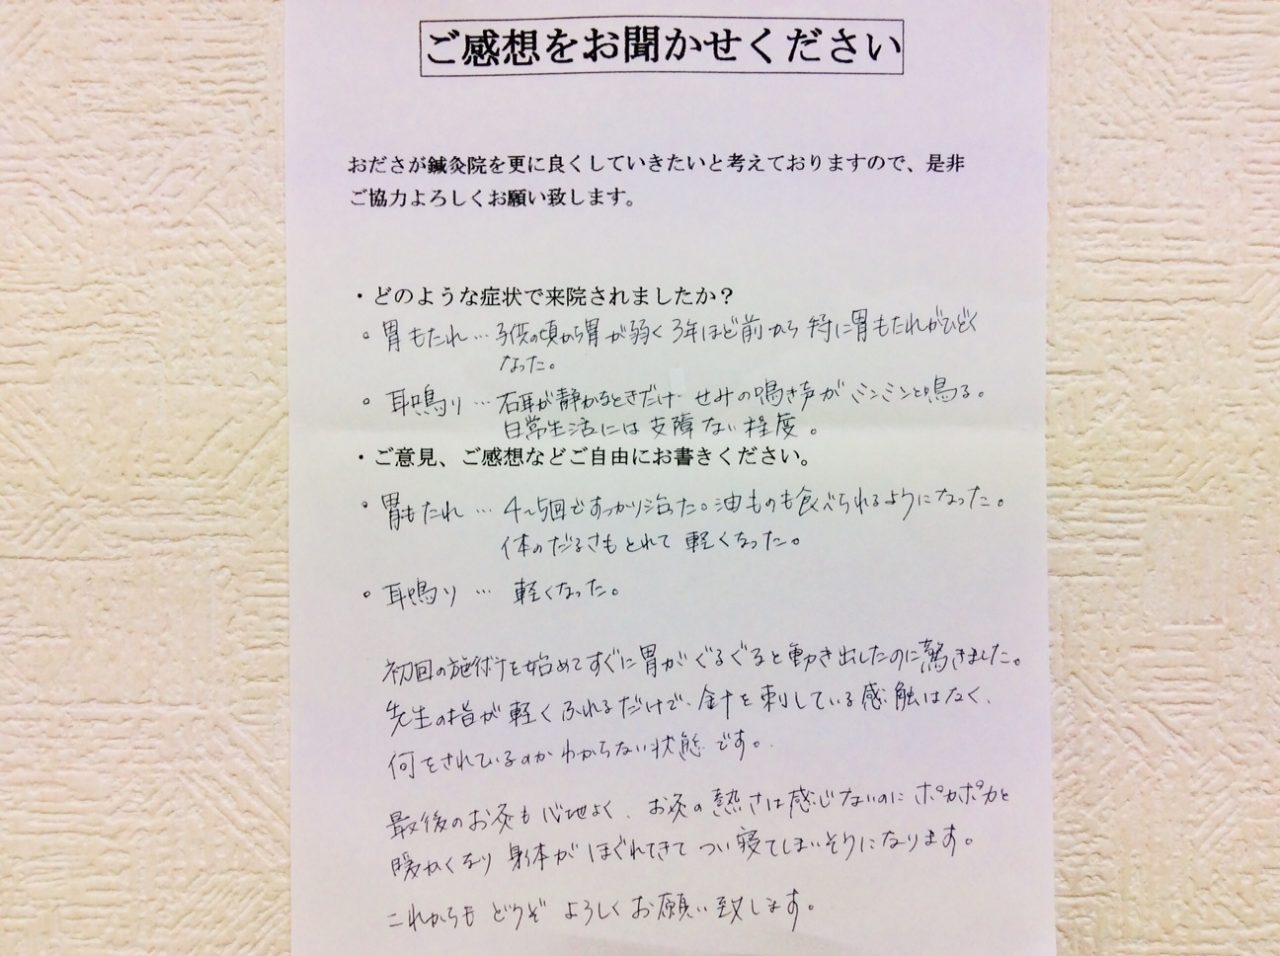 ご感想をお聞かせください
おださが鍼灸院を更に良くしていきたいと考えておりますので、是非
ご協力よろしくお願い致します。
・どのような症状で来院されましたか？
。胃もたれ … 子供の頃から胃が弱く 3年ほど前から 特に胃もたれがひどく
なった。
。耳鳴り … 右耳が静かなときだけ せみの鳴き声が ミンミンと鳴る。
日常生活には 支障ない 程度。
・ご意見、ご感想などご自由にお書きください。
。胃もたれ … 4~5回ですっかり治った。油ものも食べられるようになった。
体のだるさもとれて 軽くなった。
。耳鳴り … 軽くなった。
初回の施術を始めてすぐに胃がぐるぐると動き出したのに驚きました。
先生の指が軽くふれるだけで、針を刺している感触はなく、
何をされているのかわからない状態です。
最後のお灸も心地よく、お灸の熱さは感じないのにポカポカと
暖かくなり 身体が ほぐれてきて つい寝てしまいそうになります。
これからも どうぞ よろしく お願い致します。